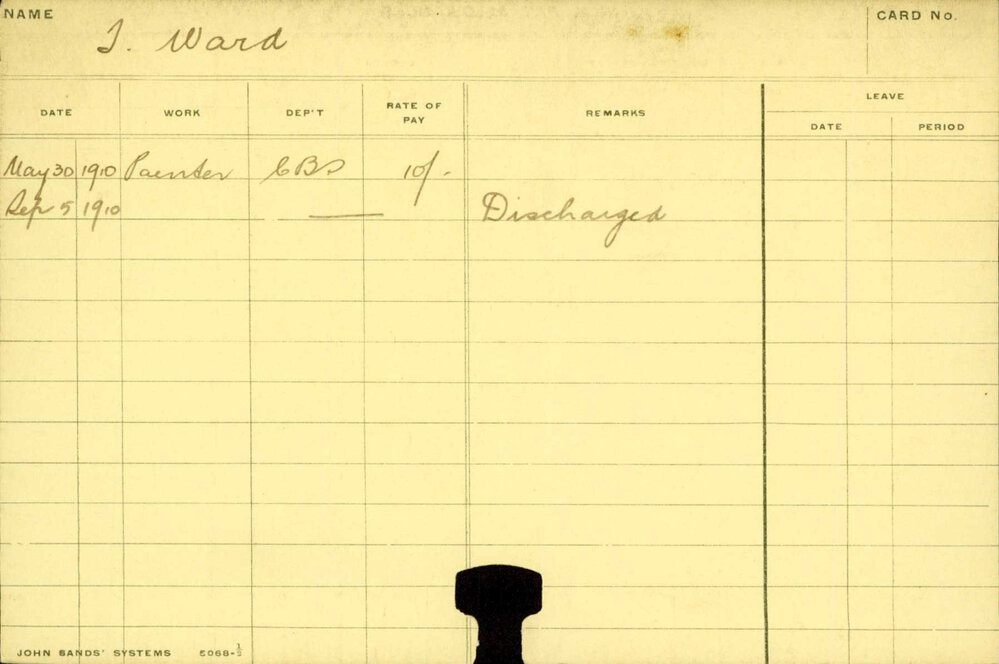 NAME
CARD No.
J. Ward
DATE WORK DEP'T RATE OF PAY REMARKS LEAVE
DATE PERIOD
May 30 1910 Painter CBS 10/-
Sep 5 1910 —— Discharged
JOHN SANDS' SYSTEMS 5068-½